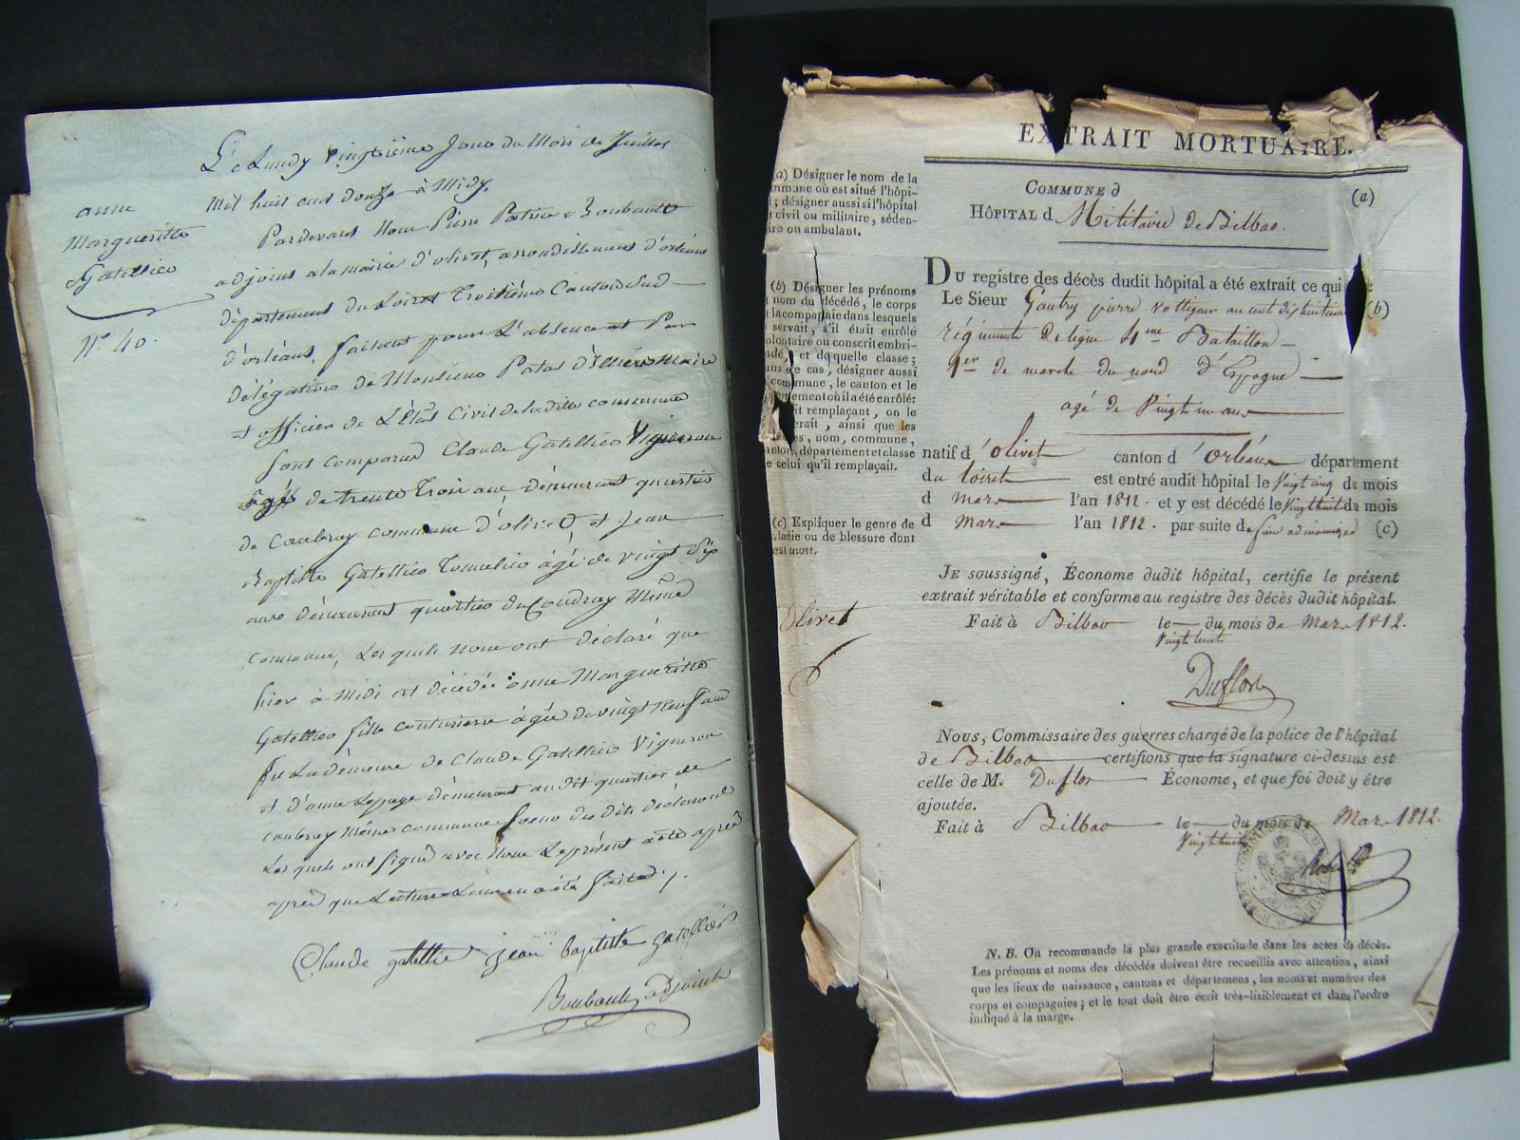 Le Lundy vingtième Jour du Mois de Juillet
Mil huit cent douze à Midy.
anne
Margueritte
Gatellier
N.º 40.
Pardevant Nous Pierre Patrice Boubault
adjoint a la mairie d'olivet, arrondissement d'orléans
département du Loiret Troisième Canton Sud
d'orléans, faisant pour L'absence et Par
délégation de Monsieur Patas d'Illiers Maire
et officier de L'Etat Civil de la ditte commune
sont comparus Claude Gatellier Vigneron
âgé de trente Trois ans demeurant quartier
de Caubray commune d'olivet, et Jean
Baptiste Gatellier Tonnelier âgé de vingt Six
ans demeurant quartier du Coudray Même
Commune, Lesquels nous ont déclaré que
hier à Midi est décédée anne Margueritte
Gatellier fille couturiere âgée de vingt neuf ans
fille de Claude Gatellier Vigneron
et d'anne Lepage demeurant au dit quartier de
Caubray Même commune Soeur des dits déclarants
Lesquels ont signé avec Nous Le présent acte après
après que Lecture Leur en a été faite ./.
Claude gatellier jean baptiste gatellier
Boubault adjoint
EXTRAIT MORTUAIRE.
COMMUNE d (a)
HÔPITAL d Militaire de Bilbao.
(a) Désigner le nom de la
commune où est situé l'hôpi-
; désigner aussi si l'hôpital
civil ou militaire, séden-
ire ou ambulant.
DU registre des décès dudit hôpital a été extrait ce qui
Le Sieur Gautry pierre voltigeur au cent dix huitième (b)
régiment de ligne 4me Bataillon
1er de marche du nord d'Espagne
agé de Vingt un ans
(b) Désigner les prénoms
nom du décédé, le corps
la compagnie dans lesquels
servait, s'il était enrôlé
volontaire ou conscrit embri-
dé, et de quelle classe;
ce cas, désigner aussi
commune, le canton et le
département où il a été enrôlé:
remplaçant, on le
erait, ainsi que les
nom, commune,
canton, département et classe
de celui qu'il remplaçait.
natif d'olivet canton d'Orléans département
du loiret est entré audit hôpital le Vingt cinq du mois
d mars l'an 1812 et y est décédé le Vingt huit du mois
d mars l'an 1812. par suite de (c)
(c) Expliquer le genre de
maladie ou de blessure dont
est mort.
JE soussigné, Économe dudit hôpital, certifie le présent
extrait véritable et conforme au registre des décès dudit hôpital.
Olivet
Fait à Bilbao le du mois de Mars 1812.
Vingt huit
Duflos
Nous, Commissaire des guerres chargé de la police de l'hôpital
de Bilbao certifions que la signature ci-dessus est
celle de M. Duflos Économe, et que foi doit y être
ajoutée.
Fait à Bilbao le du mois de Mars 1812.
Vingt huit
N. B. On recommande la plus grande exactitude dans les actes de décès.
Les prénoms et noms des décédés doivent être recueillis avec attention, ainsi
que les lieux de naissance, cantons et départemens, les noms et numéros des
corps et compagnies; et le tout doit être écrit très-lisiblement et dans l'ordre
indiqué à la marge.